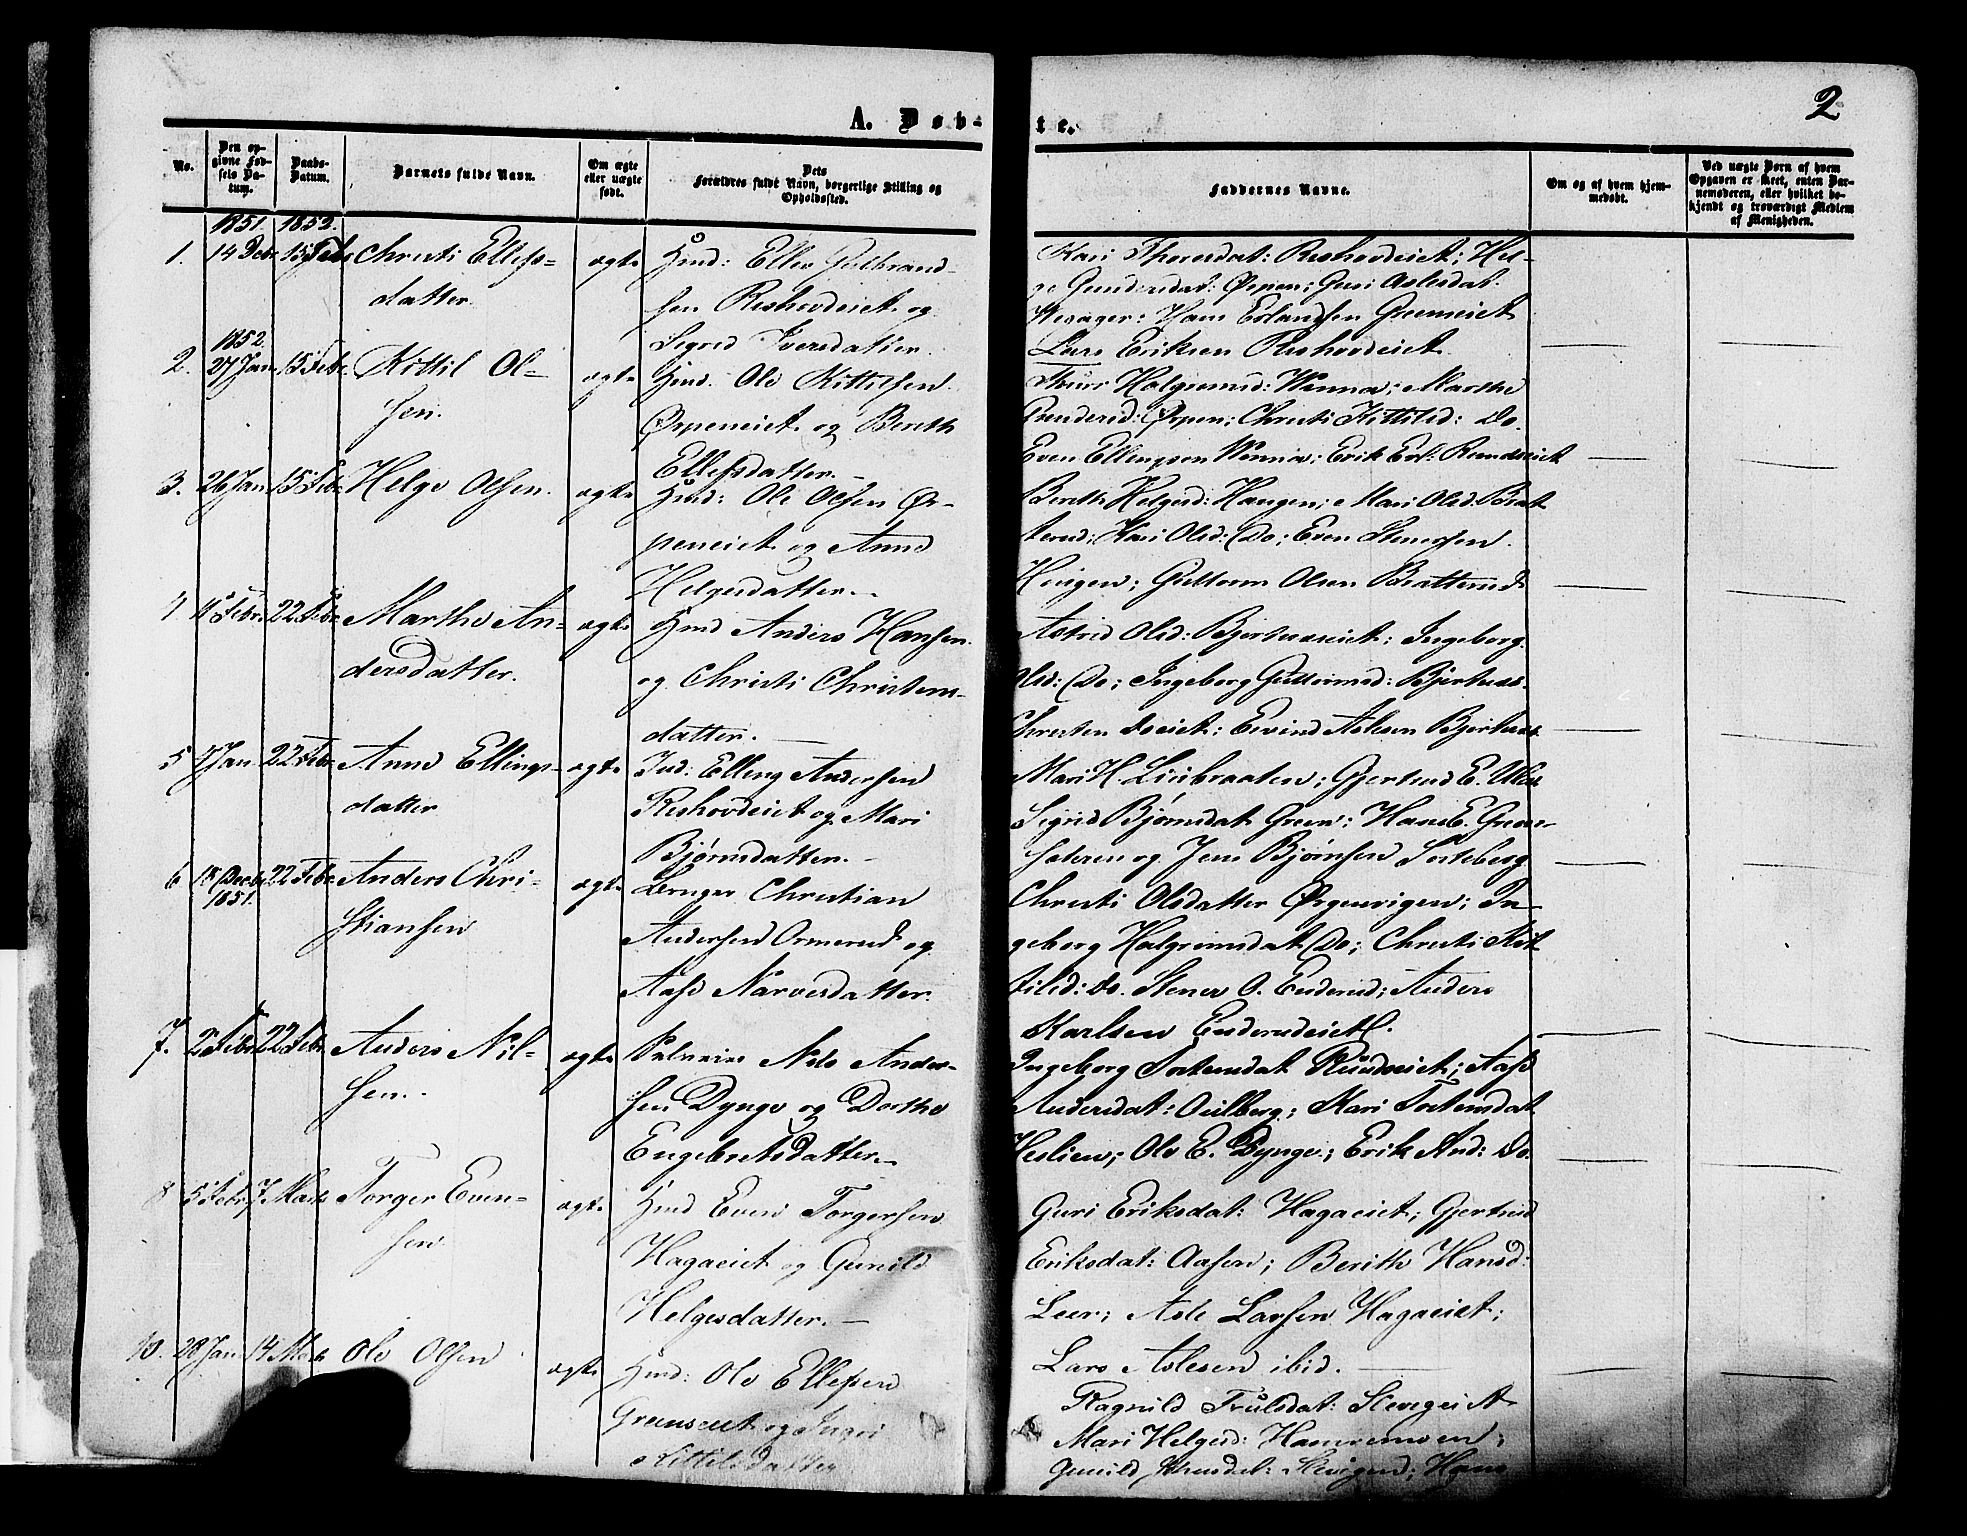 2
A. Døb-
te.
No.
Den op-
givne Fød-
sels Da-
tum.
Daabs-
Datum.
Barnets fulde Navn.
Om ægte
eller uægte
født.
Dets
Forældres fulde Navn, borgerlige Stilling og
Opholdssted.
Faddernes Navne.
Om og af hvem hjem-
medøbt.
Ved uægte Børn af hvem
Opgaven er skeet, enten Bar-
nemoderen, eller hvilket be-
kjendt og troværdigt Medlem
af Menigheden.
1851. 1852.
1. 14 Decbr 15 Febr Christi Ellefs-
datter.
ægte Huusmd: Ellev Gulbrand-
sen Reshovdeiet og
Sigrid Iversdatter.
Kari Thoresdat: Reshovdeiet; Hel-
ge Gundersdat: Ørpen; Guri Aslesdat:
Hans Erlandsen Greeneiet
Lars Eriksen Reshovdeiet.
1852.
2. 27 Jan. 15 Febr. Kittil Ol-
sen.
ægte Hmd: Ole Kittilsen
Ørpeneiet og Berith
Ellefsdatter.
Thuri Halgrimsd: Wenna; Marthe
Gundersd: Ørpen; Christi Kittilsd: Do.
Even Ellingsen Wenna; Erik Erl: Rundseiet
3. 26 Jan 15 Febr. Helge Olsen.
ægte Hmd: Ole Olsen Ør-
peneiet og Anne
Helgesdatter.
Berith Helgesd: Haugen; Mari Olsd: Brat-
terud; Kari Olsd: Do; Even Stenersen
Guttorm Olsen Bratterud
4 11 Febr. 22 Febr. Marthe An-
dersdatter.
ægte Hmd Anders Hansen
og Christi Christens-
datter.
Astrid Olsd: Bjertnæseiet; Ingeborg
Olsd: Do; Ingeborg Guttormsd: Bjertnæs.
Christen Eivind Aslesen Bjertnæs
5 4 Jan. 22 Febr. Anne Ellings-
datter
ægte Ind: Elling Andersen
Reshovdeiet og Mari
Bjørnsdatter.
Mari H. Liebraaten; Gjertrud E.
Sigrid Bjørnsdat Green; Hans E. Green-
og Jens Bjørnsen Sorteberg
6 18 Decbr 1851. 22 Febr. Anders Chri-
stiansen
ægte Bruger Christian
Andersen Ormerud og
Aase Narvesdatter.
Christi Olsdatter Ørgenvigen; In-
geborg Halgrimsdat Do; Christi Kit-
tilsd: Do. Stener O. Enderud; Anders
Karlsen Enderudeiet.
7. 2 Febr 22 Febr. Anders Nil-
sen.
ægte Selveier Nils Ander-
sen Dynge og Dorthe
Engebretsdatter.
Ingeborg Tostensdat Ruudseiet; Aase
Andersdat: Guldberg; Kari Tostensdat
Heslien; Ole E. Dynge; Erik And: Do.
8 5 Febr 7 Marts Torger Even-
sen
ægte Hmd Even Torgersen
Hagaeiet og Gunild
Helgesdatter.
Guri Eriksdat: Hagaeiet; Gjertrud
Eriksdat: Aasen; Berith Hansd:
Leer; Asle Larsen Hagaeiet;
Lars Aslesen ibid.
10. 28 Jan 14 Marts Ole Olsen
ægte Hmd: Ole Ellefsen
Greenseiet og Ingri
Kittilsdatter
Ragnild Truelsdat: Skeigeiet
Mari Helgesd: Hameremoen;
Gunild Knudsdat: Hans